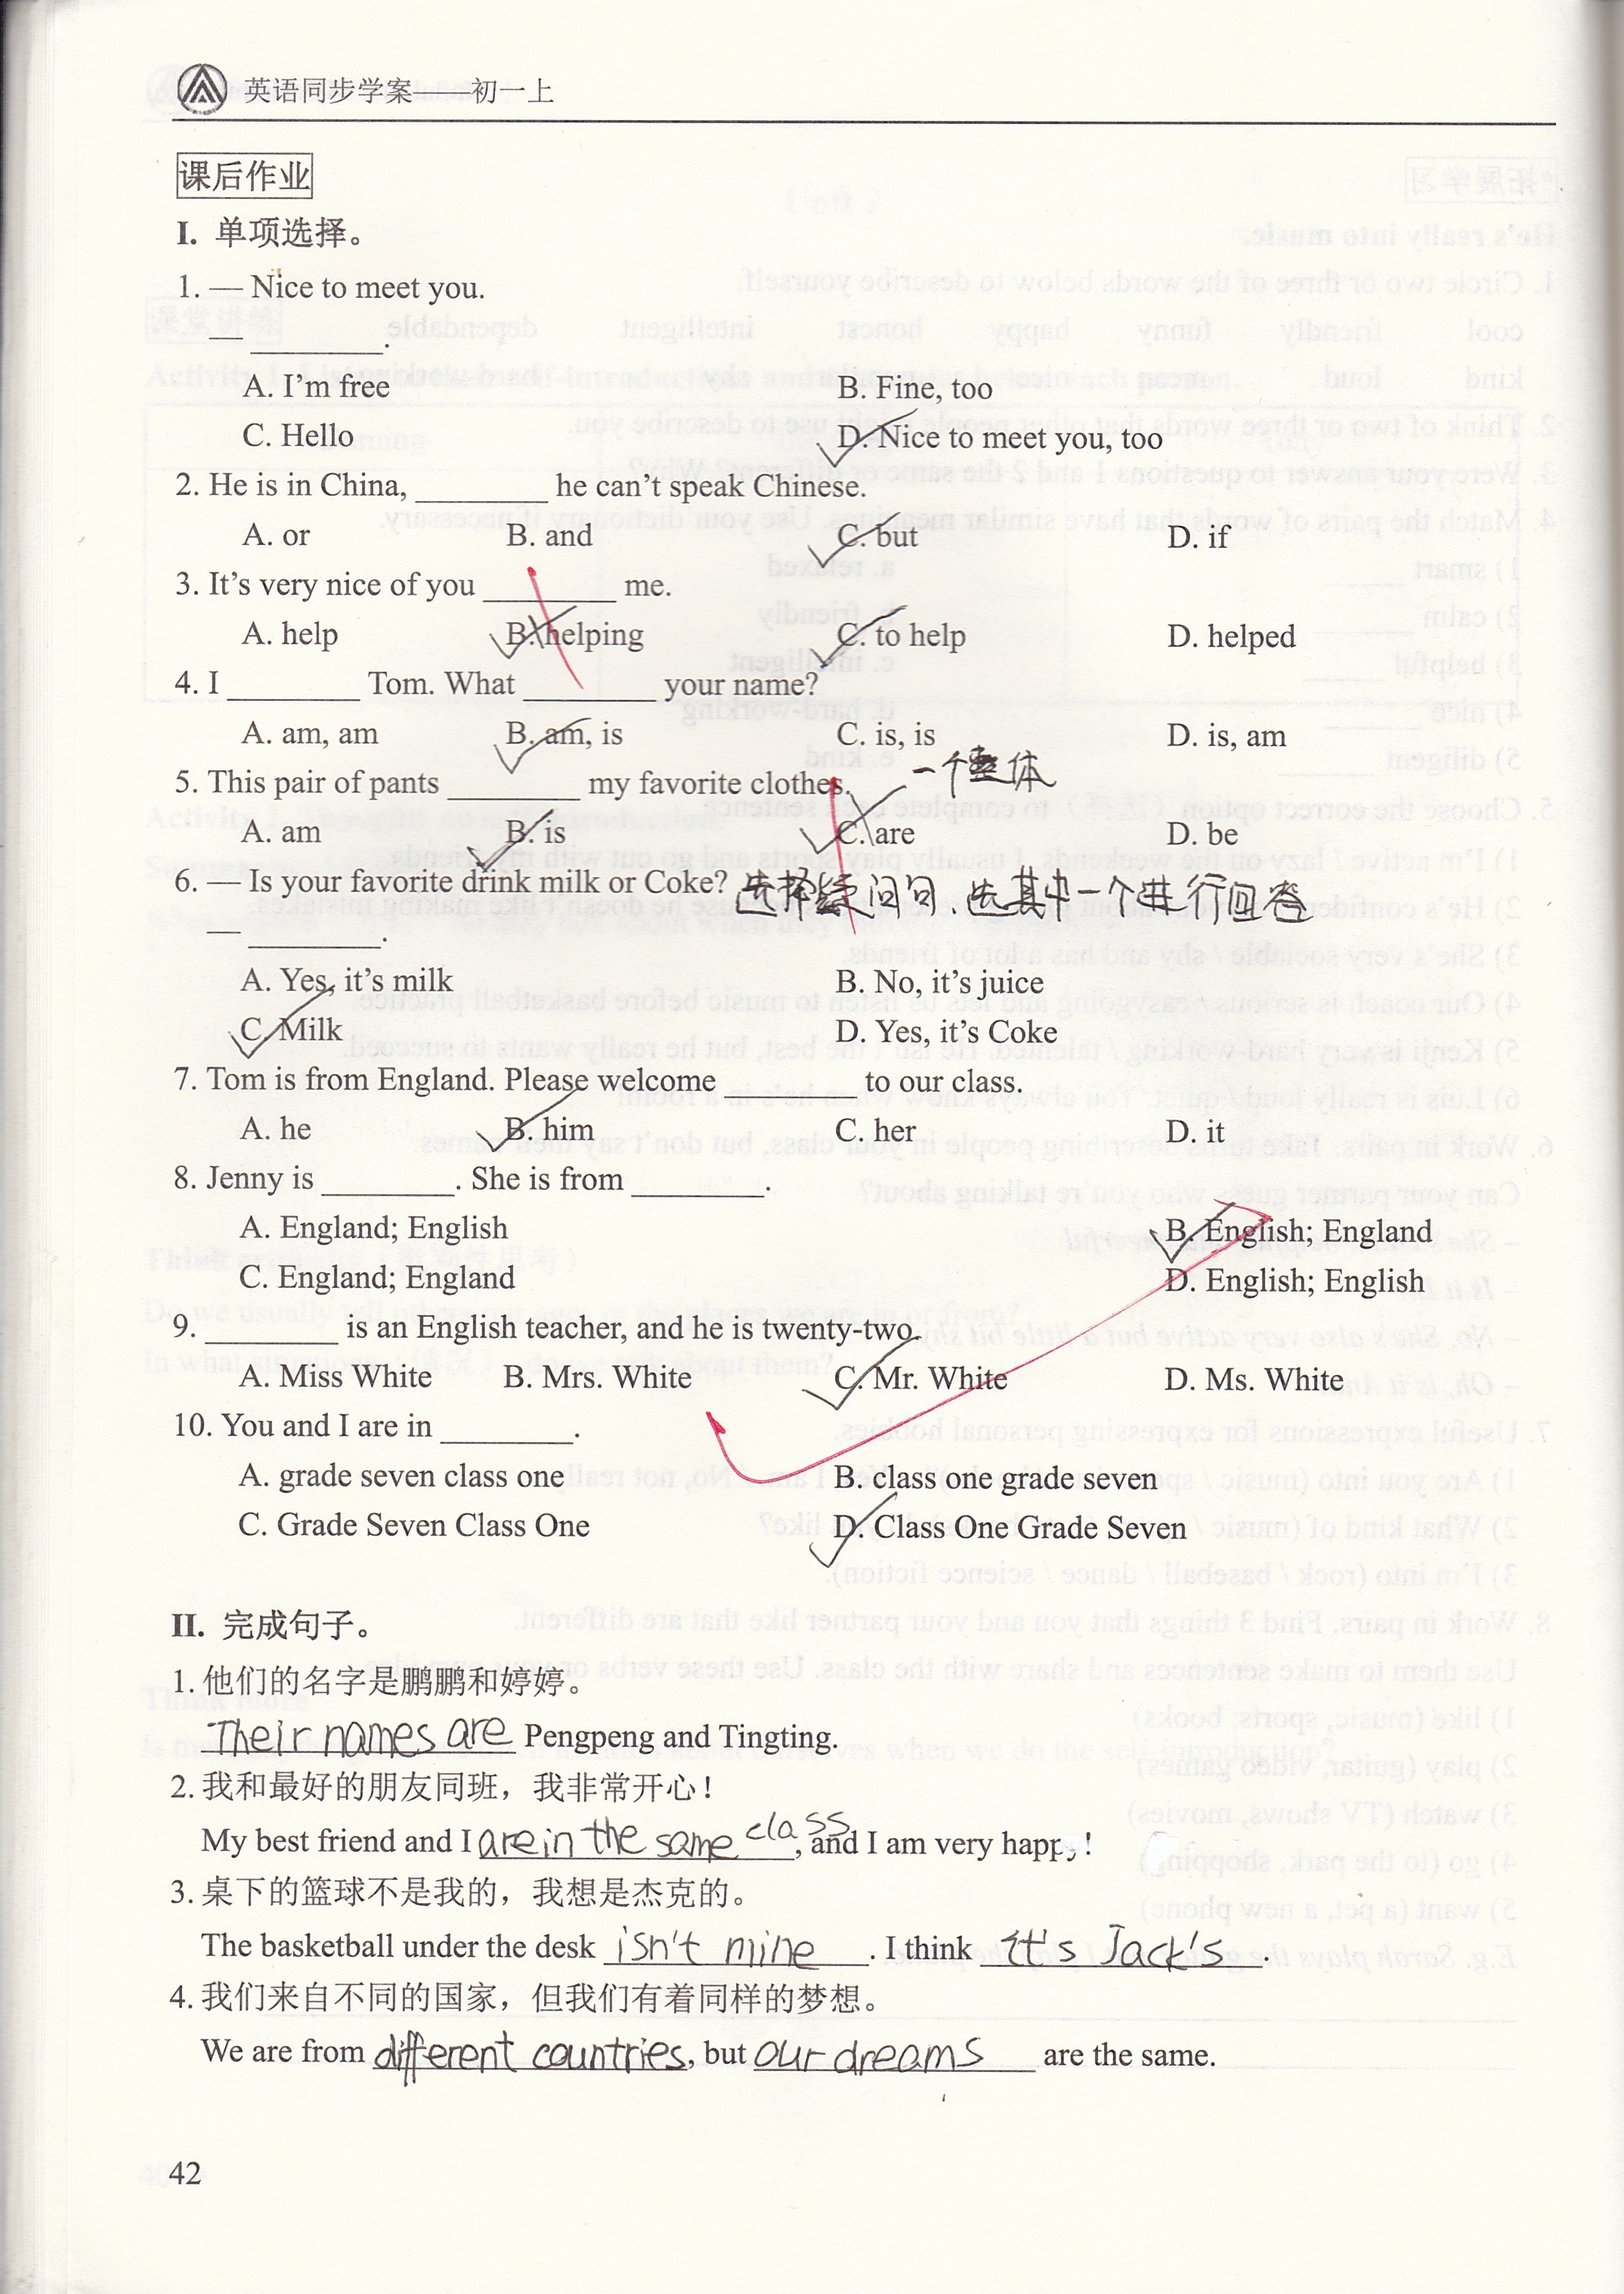 英语同步学案——初一上
课后作业
I. 单项选择。
1. — Nice to meet you.
— ________.
A. I'm free B. Fine, too
C. Hello D. Nice to meet you, too
2. He is in China, ________ he can't speak Chinese.
A. or B. and C. but D. if
3. It's very nice of you ________ me.
A. help B. helping C. to help D. helped
4. I ________ Tom. What ________ your name?
A. am, am B. am, is C. is, is D. is, am
一个整体
5. This pair of pants ________ my favorite clothes.
A. am B. is C. are D. be
6. — Is your favorite drink milk or Coke? 选择疑问句、选其中一个进行回答
— ________.
A. Yes, it's milk B. No, it's juice
C. Milk D. Yes, it's Coke
7. Tom is from England. Please welcome ________ to our class.
A. he B. him C. her D. it
8. Jenny is ________. She is from ________.
A. England; English B. English; England
C. England; England D. English; English
9. ________ is an English teacher, and he is twenty-two.
A. Miss White B. Mrs. White C. Mr. White D. Ms. White
10. You and I are in ________.
A. grade seven class one B. class one grade seven
C. Grade Seven Class One D. Class One Grade Seven
II. 完成句子。
1. 他们的名字是鹏鹏和婷婷。
Their names are Pengpeng and Tingting.
2. 我和最好的朋友同班，我非常开心！
My best friend and I are in the same class, and I am very happy!
3. 桌下的篮球不是我的，我想是杰克的。
The basketball under the desk isn't mine. I think it's Jack's.
4. 我们来自不同的国家，但我们有着同样的梦想。
We are from different countries, but our dreams are the same.
42